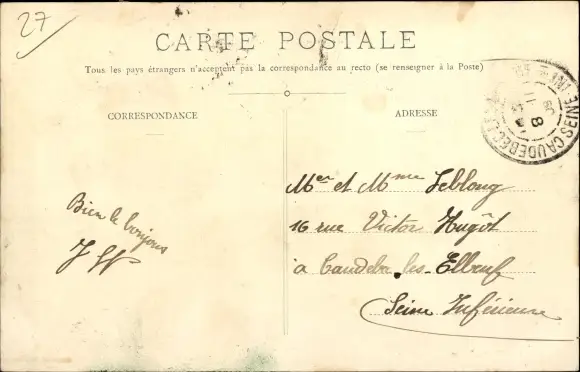 27
CARTE POSTALE
Tous les pays étrangers n'acceptent pas la correspondance au recto (se renseigner à la Poste)
CORRESPONDANCE
ADRESSE
Bien le bonjour
Mer et Mme Leblong
16 rue Victor Hugôt
à Caudebe. les- Elbeuf
Seine Inférieure
CAUDEBEC
8
11